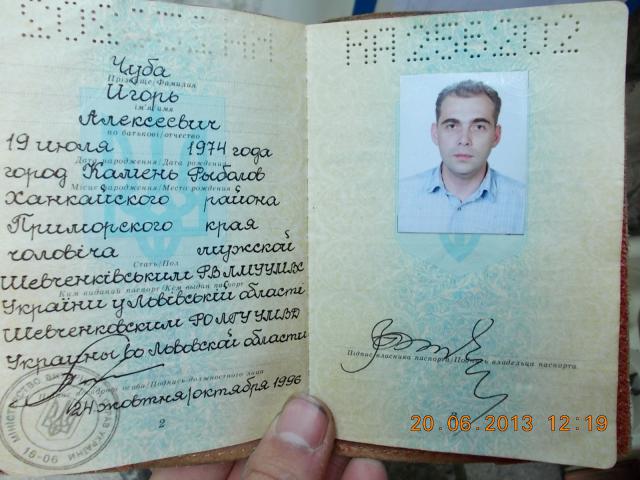 Чуба
Прізвище/Фамилия
Игорь
ім'я/имя
Алексеевич
по батькові/отчество
19 июля 1974 года
Дата народження/Дата рождения
город Камень Рыболов
Місце народження/Место рождения
Ханкайского района
Приморского края
чоловіча мужской
Стать/Пол
Шевченківським РВ ЛМУ УМВС
Ким виданий паспорт/Кем выдан паспорт
України у Львівській області
Шевченковским РО ЛГУ УМВД
Украины во Львовской области
24 жовтня/октября 1996
2
Підпис власника паспорта/Подпись владельца паспорта
3
20.06.2013 12:19